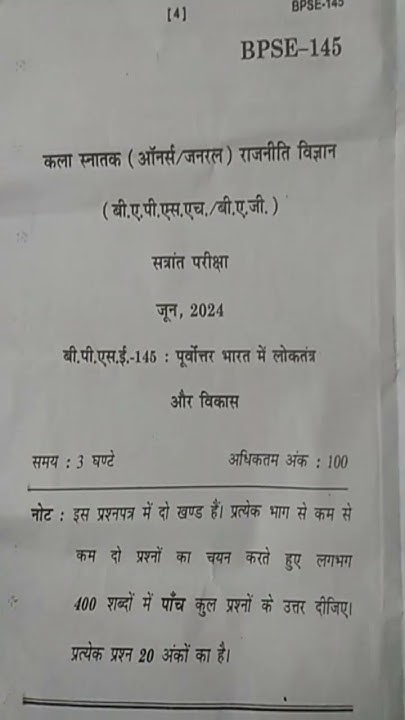 [4]
BPSE-145
BPSE–145
कला स्नातक (ऑनर्स/जनरल) राजनीति विज्ञान
(बी.ए.पी.एस.एच./बी.ए.जी.)
सत्रांत परीक्षा
जून, 2024
बी.पी.एस.ई.-145 : पूर्वोत्तर भारत में लोकतंत्र
और विकास
समय : 3 घण्टे अधिकतम अंक : 100
नोट : इस प्रश्नपत्र में दो खण्ड हैं। प्रत्येक भाग से कम से
कम दो प्रश्नों का चयन करते हुए लगभग
400 शब्दों में पाँच कुल प्रश्नों के उत्तर दीजिए।
प्रत्येक प्रश्न 20 अंकों का है।